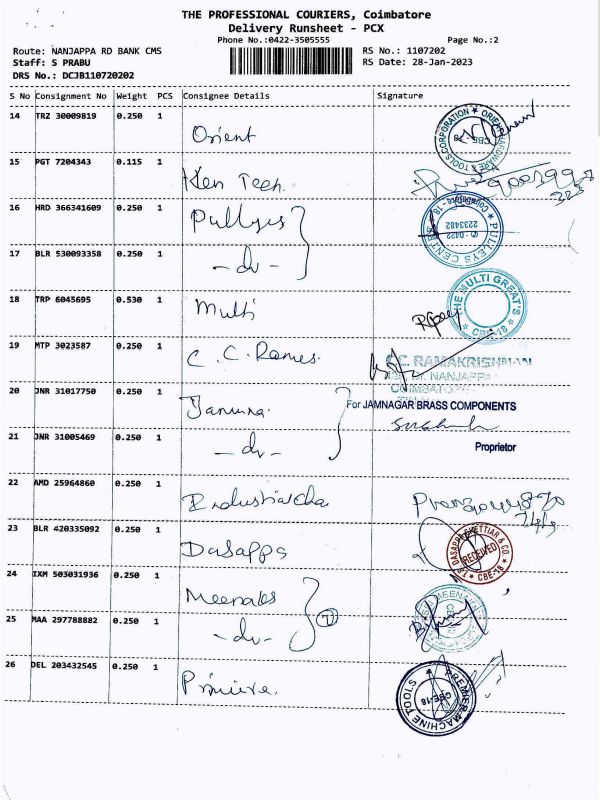 THE PROFESSIONAL COURIERS, Coimbatore
Delivery Runsheet - PCX
Phone No.:0422-3505555 Page No.:2
Route: NANJAPPA RD BANK CMS RS No.: 1107202
Staff: S PRABU RS Date: 28-Jan-2023
DRS No.: DCJB110720202
S No Consignment No Weight PCS Consignee Details Signature
14 TRZ 30009819 0.250 1
Orient
ORIENT HARDWARES TOOLS CORPORATION
15 PGT 7204343 0.115 1
Ken Tech.
16 HRD 366341609 0.250 1
Pulleys
PULLEYS CENTRE Coimbatore - 18
0422 2233482
17 BLR 530093358 0.250 1
- do -
18 TRP 6045695 0.530 1
Multi
THE MULTI GREAT'S CBE-18
19 MTP 3023587 0.250 1
C. C. Rames.
RAMAKRISHNAN
NANJAPPA
20 JNR 31017750 0.250 1
For JAMNAGAR BRASS COMPONENTS
21 JNR 31005469 0.250 1
- do -
Proprietor
22 AMD 25964860 0.250 1
23 BLR 420335092 0.250 1
Dasappa
DASAPPA CHETTIAR & CO.
RECEIVED
CBE-18
24 IXM 503031936 0.250 1
Meenaks
MEENA
25 MAA 297788882 0.250 1
- do -
26 DEL 203432545 0.250 1
PREMIER MACHINE TOOLS
CBE-18